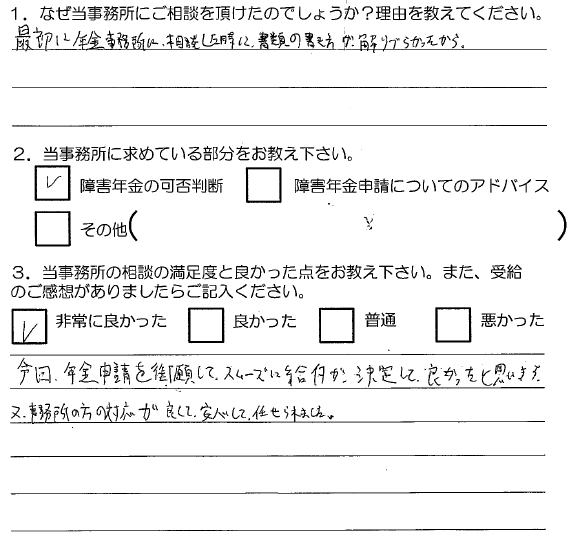 1．なぜ当事務所にご相談を頂けたのでしょうか？理由を教えてください。
最初に年金事務所に、相談した時に、書類の書き方が、解りづらかったから。
2．当事務所に求めている部分をお教え下さい。
障害年金の可否判断 障害年金申請についてのアドバイス
その他( )
3．当事務所の相談の満足度と良かった点をお教え下さい。また、受給
のご感想がありましたらご記入ください。
非常に良かった 良かった 普通 悪かった
今回、年金申請を依願して、スムーズに給付が、決定して、良かったと思います。
又、事務所の方の対応が良くて、安心して、任せられました。